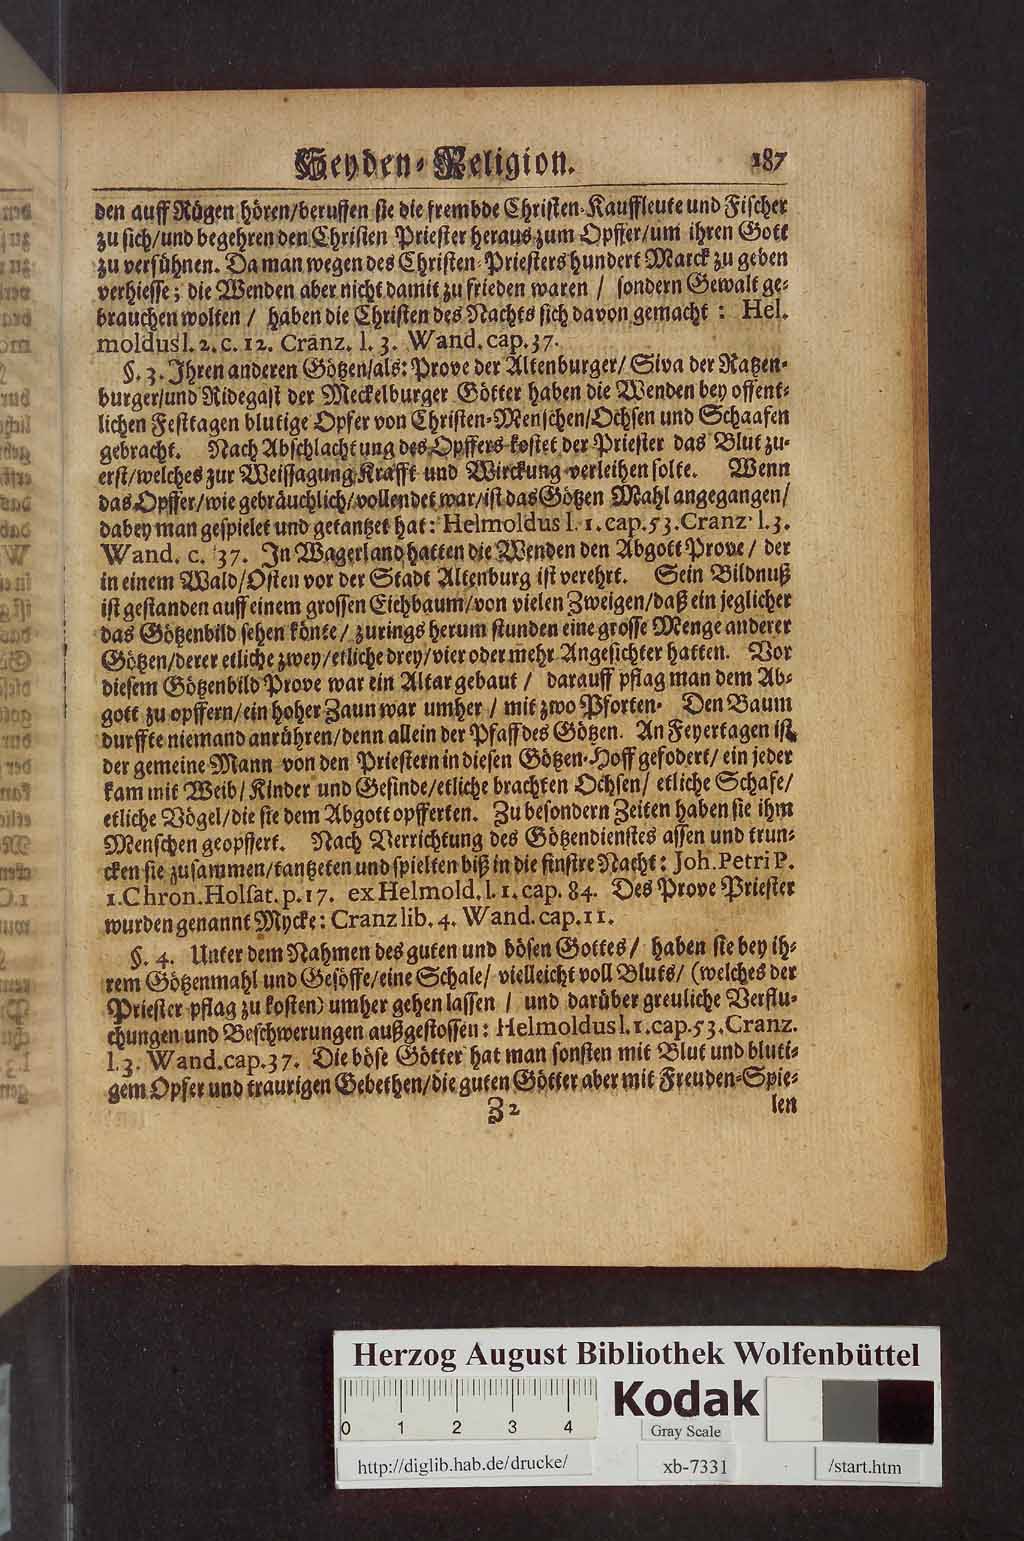 Heyden-Religion. 187
den auff Rügen hören/beruffen sie die frembde Christen-Kauffleute und Fischer
zu sich/und begehren den Christen Priester heraus zum Opffer/um ihren Gott
zu versühnen. Da man wegen des Christen-Priesters hundert Marck zu geben
verhiesse; die Wenden aber nicht damit zu frieden waren / sondern Gewalt ge-
brauchen wolten / haben die Christen des Nachts sich davon gemacht : Hel.
moldus l. 2. c. 12. Cranz. l. 3. Wand. cap. 37.
§. 3. Ihren anderen Götzen/als: Prove der Altenburger/ Siva der Ratzen-
burger/und Ridegast der Meckelburger Götter haben die Wenden bey offent-
lichen Festtagen blutige Opfer von Christen-Menschen/Ochsen und Schaafen
gebracht. Nach Abschlachtung des Opffers kostet der Priester das Blut zu-
erst/welches zur Weissagung Krafft und Wirckung verleihen solte. Wenn
das Opffer/wie gebräuchlich/vollendet war/ist das Götzen Mahl angegangen/
dabey man gespielet und getantzet hat: Helmoldus l. 1. cap. 53. Cranz. l. 3.
Wand. c. 37. In Wagerland hatten die Wenden den Abgott Prove / der
in einem Wald/Osten vor der Stadt Altenburg ist verehrt. Sein Bildnuß
ist gestanden auff einem grossen Eichbaum/von vielen Zweigen/daß ein jeglicher
das Götzenbild sehen könte/ zurings herum stunden eine grosse Menge anderer
Götzen/derer etliche zwey/etliche drey/vier oder mehr Angesichter hatten. Vor
diesem Götzenbild Prove war ein Altar gebaut / darauff pflag man dem Ab-
gott zu opffern/ein hoher Zaun war umher / mit zwo Pforten. Den Baum
durffte niemand anrühren/denn allein der Pfaff des Götzen. An Feyertagen ist
der gemeine Mann von den Priestern in diesen Götzen-Hoff gefodert/ ein jeder
kam mit Weib/ Kinder und Gesinde/etliche brachten Ochsen/ etliche Schafe/
etliche Vögel/die sie dem Abgott opfferten. Zu besondern Zeiten haben sie ihm
Menschen geopffert. Nach Verrichtung des Götzendienstes assen und trun-
cken sie zusammen/tantzeten und spielten biß in die finstre Nacht: Joh. Petri P.
1. Chron. Holsat. p. 17. ex Helmold. l. 1. cap. 84. Des Prove Priester
wurden genannt Mycke: Cranz lib. 4. Wand. cap. 11.
§. 4. Unter dem Nahmen des guten und bösen Gottes/ haben sie bey ih-
rem Götzenmahl und Gesöffe/eine Schale/ vielleicht voll Bluts/ (welches der
Priester pflag zu kosten) umher gehen lassen / und darüber greuliche Verflu-
chungen und Beschwerungen außgestossen: Helmoldus l. 1. cap. 53. Cranz.
l. 3. Wand. cap. 37. Die böse Götter hat man sonsten mit Blut und bluti-
gem Opfer und traurigen Gebethen/die guten Götter aber mit Freuden-Spie-
Z 2 len
Herzog August Bibliothek Wolfenbüttel
0 1 2 3 4 Kodak
Gray Scale
http://diglib.hab.de/drucke/ xb-7331 /start.htm